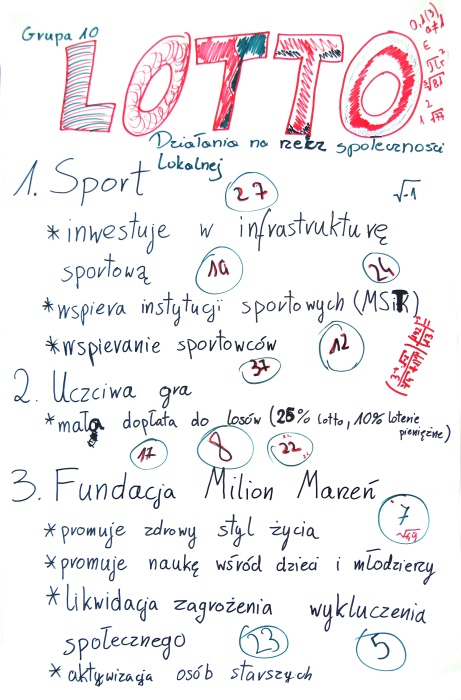 Grupa 10
LOTTO
Działania na rzecz społeczności
Lokalnej
1. Sport
27
√-1
* inwestuje w infrastrukturę
sportową
19
24
* wspiera instytucji sportowych (MSiT)
* wspieranie sportowców
12
37
2. Uczciwa gra
* mała dopłata do losów (25% lotto, 10% loterie
pieniężne)
17
8
22
3. Fundacja Milion Marzeń
7
√49
* promuje zdrowy styl życia
* promuje naukę wśród dzieci i młodzierzy
* likwidacja zagrożenia wykluczenia
społecznego
23
5
* aktywizacja osób starszych